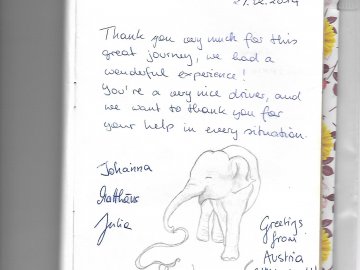 Thank you very much for this
great journey, we had a
wonderful experience!
You're a very nice driver, and
we want to thank you for
your help in every situation.
Johanna
Matthäus
Julia
Greetings
from
Austria